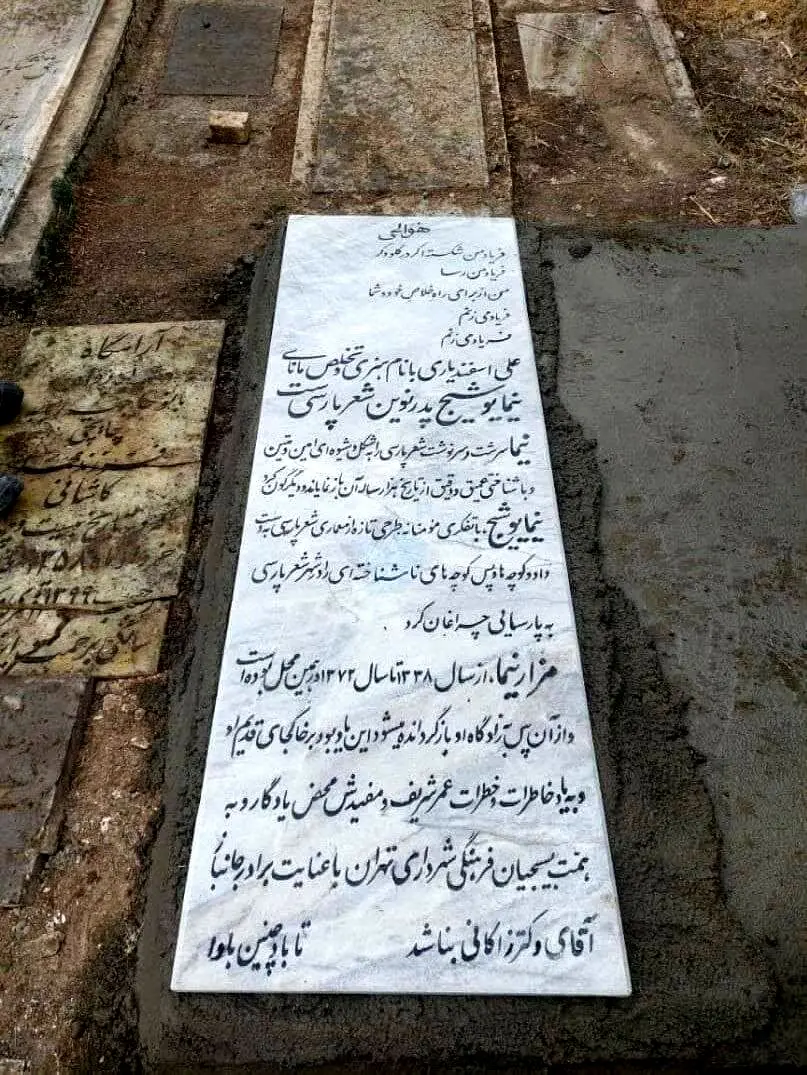 هوالحی
فریاد من شکسته اگر در گلو وگر
فریاد من رسا
من از برای راه خلاص خود و شما
فریاد می زنم
فریاد می زنم
علی اسفندیاری با نام هنری و تخلص مانای
نیما یوشیج پدر نوین شعر پارسی است
نیما سرشت و سرنوشت شعر پارسی را به شکل و شیوه ای امین و متین
و با شناختی عمیق و دقیق از تاریخ هزار ساله آن باز نمایاند و دیگرگون کرد
نیما یوشیج، با تفکری مؤمنانه طرحی تازه از معماری شعر پارسی به دست
داد و کوچه ها و پس کوچه های ناشناخته ای را در شهر شعر پارسی
به پارسایی چراغان کرد.
مزار نیما، از سال ۱۳۳۸ تا سال ۱۳۷۲ در همین محل بوده است
و از آن پس به زادگاه او باز گردانده میشود این یادبود بر خاکجای قدیم او
و به یاد خاطرات و خطرات عمر شریف و مفیدش محض یادگار و به
همت بسیجیان فرهنگی شهرداری تهران با عنایت برادر جانباز
آقای دکتر زاکانی بنا شد تا باد چنین بادا
آرامگاه
کاشانی
۱۳۵۸
۱۳۹۹